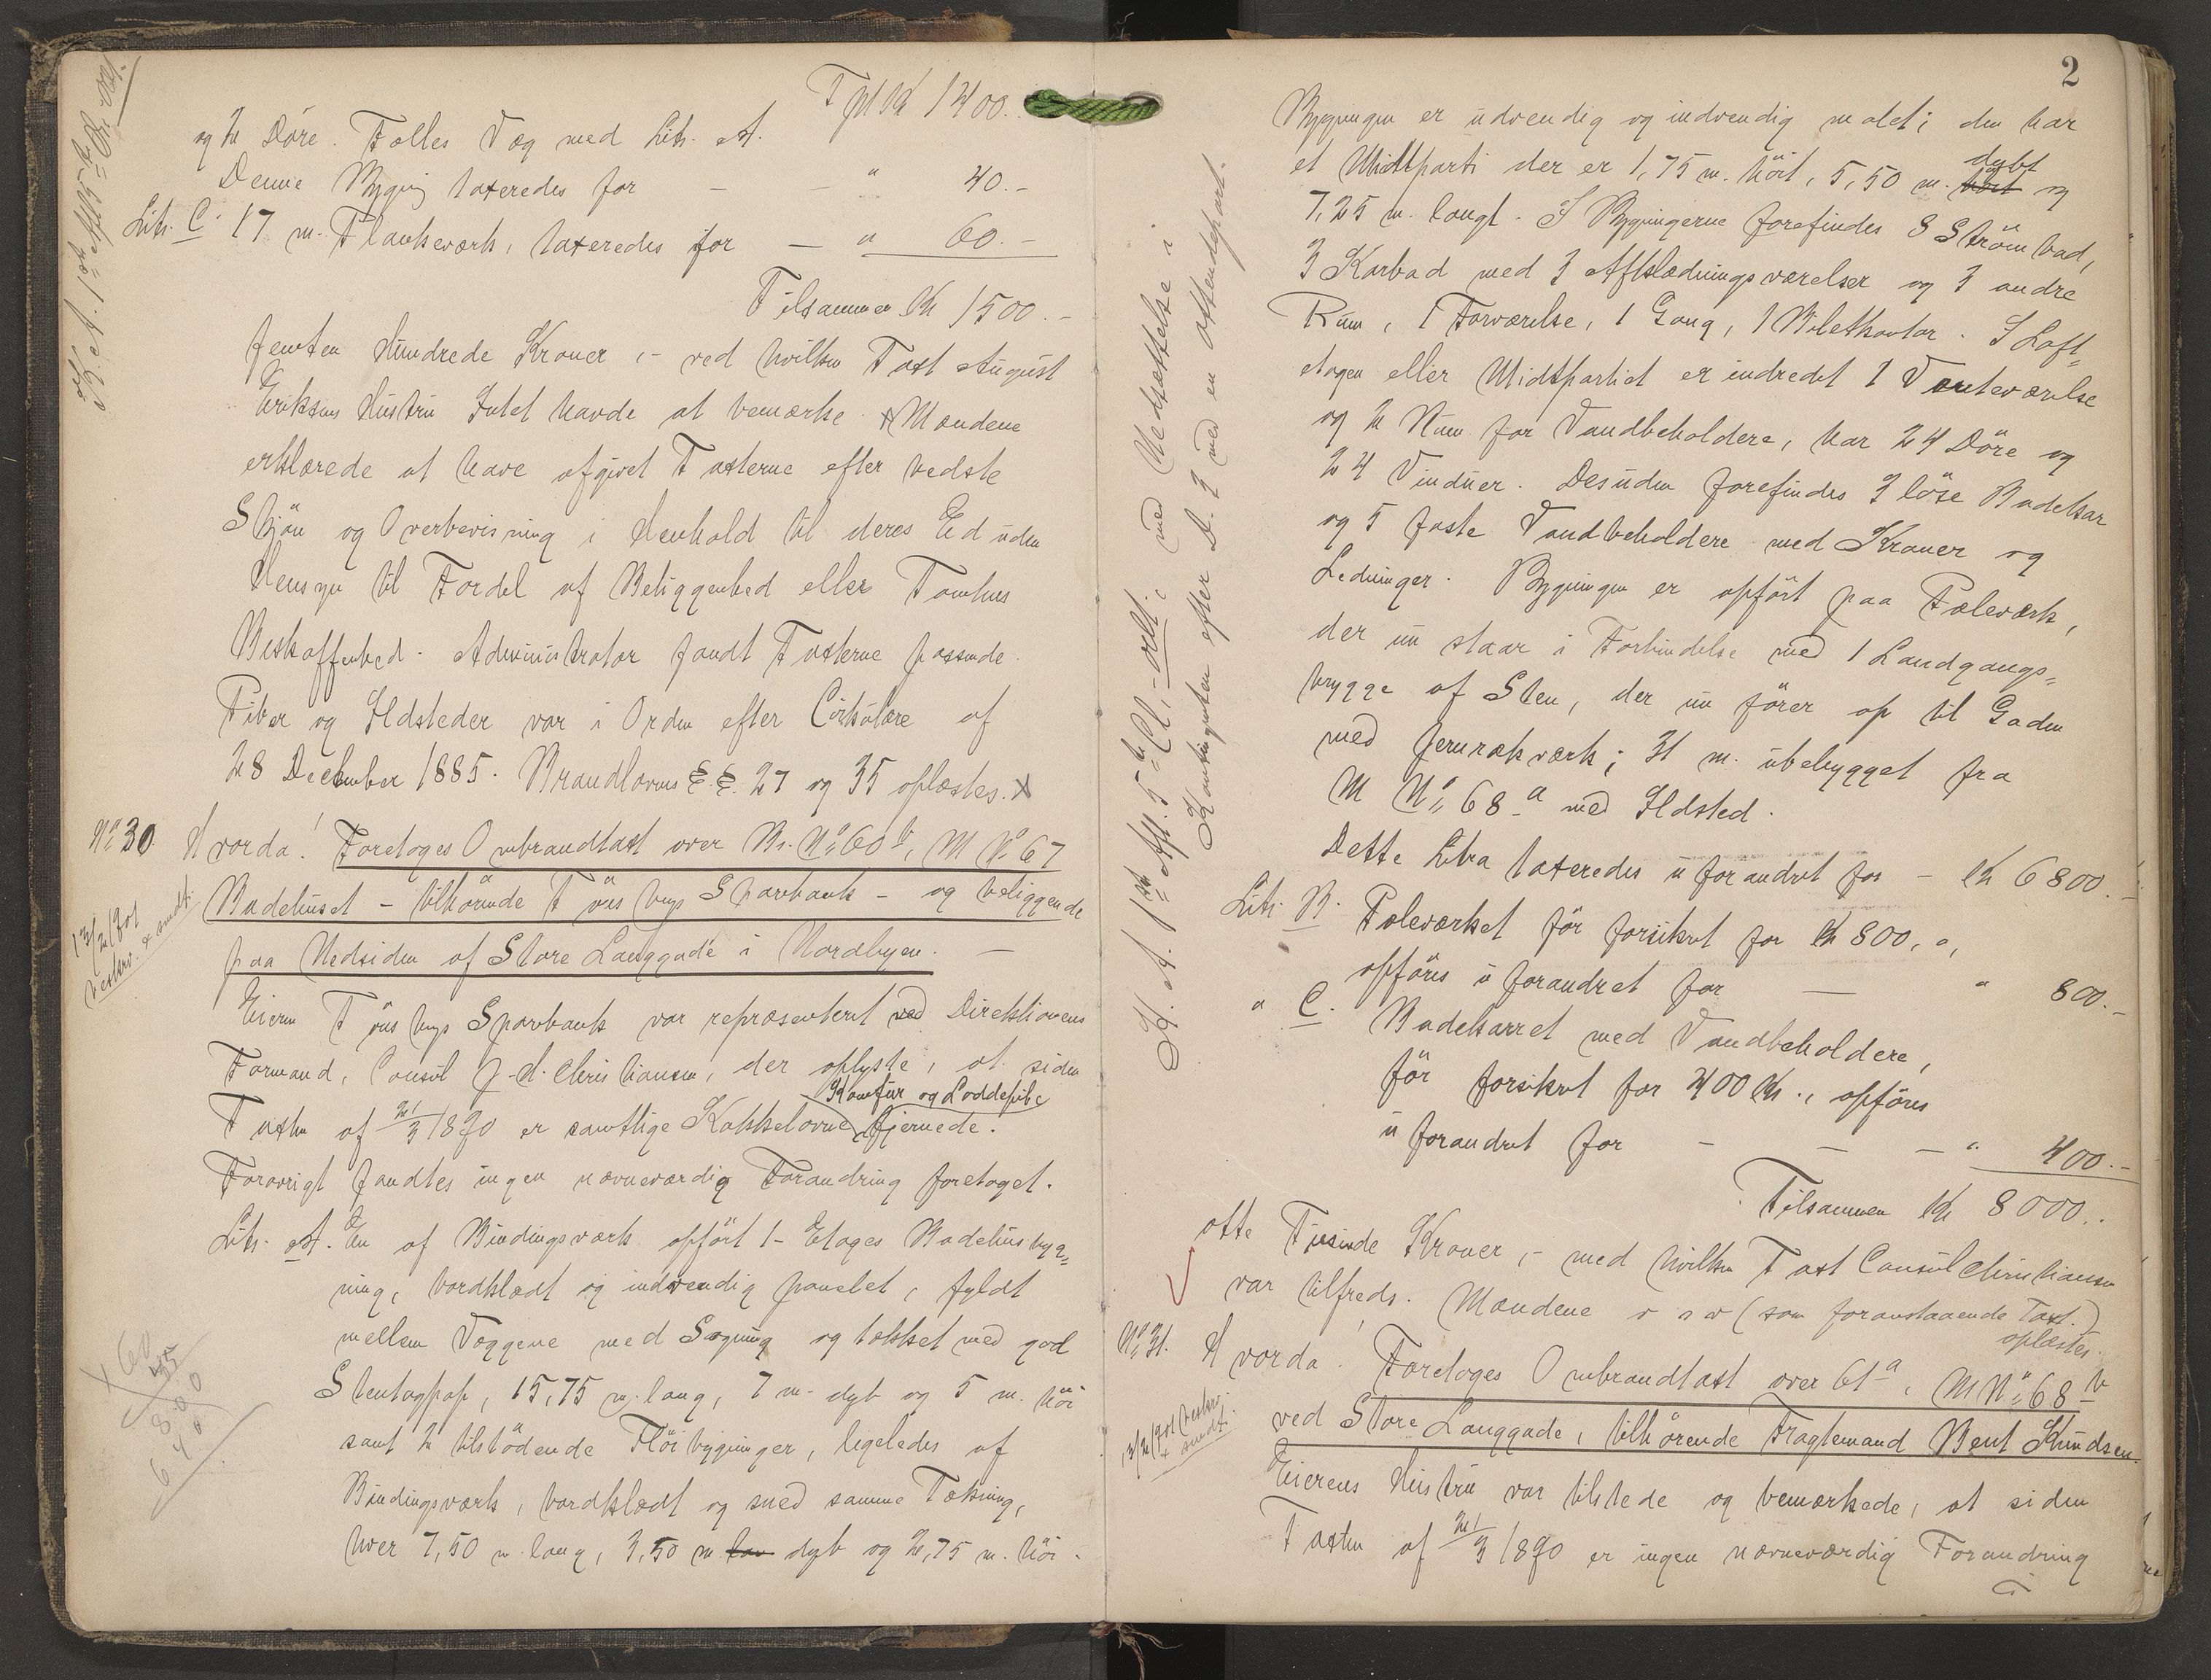 Tpt Kr 1400.-
og 2 Döre. Fælles Væg med Litr. A.
Denne Bygning taxeredes for — " 40.-
Litr. C. 17 m. Plankeværk, taxeredes for — " 60.-
Tilsammen Kr 1500.-
femten Hundrede Kroner,- ved hvilken Taxt August
Eriksens Hustru Intet havde at bemærke. x Mændene
erklærede at have afgivet Taxterne efter bedste
Skjön og Overbevisning i Henhold til deres Ed uden
Hensyn til Fordel af Beliggenhed eller Tomtens
Beskaffenhed. Administrator fandt Taxterne passende.
Piber og Ildsteder var i Orden efter Cirkulære af
28 December 1885. Brandlovens §.§. 27 og 35 oplæstes. x
No 30. Hvorda! Foretoges Ombrandtaxt over Br. No 60 b, M No 67
Badehuset - tilhörende Tönsbergs Sparebank - og beliggende
paa Nedsiden af Store Langgade i Nordbyen. —
13/2/1901
beskr. & sendt.
Eieren Tönsbergs Sparebank var repræsenteret ved Direktionens
Formand, Consul J. H. Christiansen, der oplyste, at siden
Komfur og Loddepibe
Taxten af 21/3 1890 er samtlige Kakkelovne fjernede.
Forövrigt fandtes ingen nævneværdig Forandring foretaget.
Litr. A. En af Bindingsværk opfört 1- Etages Badehusbyg=
ning, bordklædt og indvendig panelet, fyldt
mellem Væggene med Sagmug og tækket med god
Stentagpap, 15,75 m. lang, 7 m. dyb og 5 m. höi
samt 2 tilstödende Flöibygninger, ligeledes af
Bindingsværk, bordklædt og med samme Tækning,
hver 7,50 m. lang, 3,50 m lav dyb og 2,75 m. höi.
K. A. 1ste Afl. 5te Cl. Oet.
60
35
800
640
2
Bygningen er udvendig og indvendig malet; den har
dybt
et Midtparti der er 1,75 m. höit, 5,50 m. höit og
7,25 m. langt. I Bygningerne forefindes 8 Strömbad,
3 Karbad med 3 Afklædningsværelser og 3 andre
Rum, 1 Forværelse, 1 Gang, 1 Billetkontor. I Loft=
etagen eller Midtpartiet er indredet 1 Venteværelse
og 2 Rum for Vandbeholdere, har 24 Döre og
24 Vinduer. Desuden forefindes 3 löse Badekar
og 5 faste Vandbeholdere med Kraner og
Ledninger. Bygningen er opfört paa Pæleværk,
der nu staar i Forbindelse med 1 Landgangs=
brygge af Sten, der nu förer op til Gaden
med Jernrækværk; 31 m. ubebygget fra
M No 68 a med Ildsted.
Dette Litra taxeredes uforandret for - Kr 6800.-
Litr. B. Pæleværket för forsikret for Kr 800,",
opföres uforandret for — " 800.-
" C. Badekarret med Vandbeholdere,
för forsikret for 400 Kr., opföres
uforandret for - — - " 400.-
Tilsammen Kr 8000.-
otte Tusinde Kroner,- med hvilken Taxt Consul Christiansen
var tilfreds. Mændene o s v (som foranstaaende Taxt.)
oplæstes.
No 31. Hvorda! Foretoges Ombrandtaxt over 61 a, M No 68 b
ved Store Langgade, tilhörende Fragtemand Bent Knudsen.
13/2/1901 beskr.
& sendt.
Eierens Hustru var tilstede og bemærkede, at siden
Taxten af 21/3 1890 er ingen nævneværdig Forandring
K. A. 1ste Afl. 5te Cl. - oet: med Nedsættelse i
Kontingenten efter D. 3 med en Ottendepart.